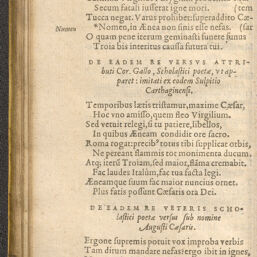 Secum fatali iusserat igne mori. (tem
Tucca negat. Varus prohibet: superaddito Cæ-
Nomen *Nomen, in Ænea non sinis esse nefas. (sar
O quam pene iterum geminasti funere funus
Troia bis interitus causa futura tui.
DE EADEM RE VERSVS ATTRI-
buti Cor. Gallo, Scholastici poetæ, vt ap-
paret: imitati ex eodem Sulpitio
Carthaginensi.
Temporibus lætis tristamur, maxime Cæsar,
Hoc vno amisso, quem fleo Virgilium.
Sed vetuit relegi, si tu patiere, libellos,
In quibus Æneam condidit ore sacro.
Roma rogat: precib9 totus tibi supplicat orbis,
Ne pereant flammis tot monumenta ducum.
Atq; iterū Troiam, sed maior, flāma cremabit.
Fac laudes Italûm, fac tua facta legi.
Æneamque suum fac maior nuncius ornet.
Plus fatis possunt Cæsaris ora Dei.
DE EADEM RE VETERIS SCHO-
lastici poetæ versus sub nomine
Augusti Cæsaris.
Ergone supremis potuit vox improba verbis
Tam dirum mandare nefas? ergo ibit in ignes,